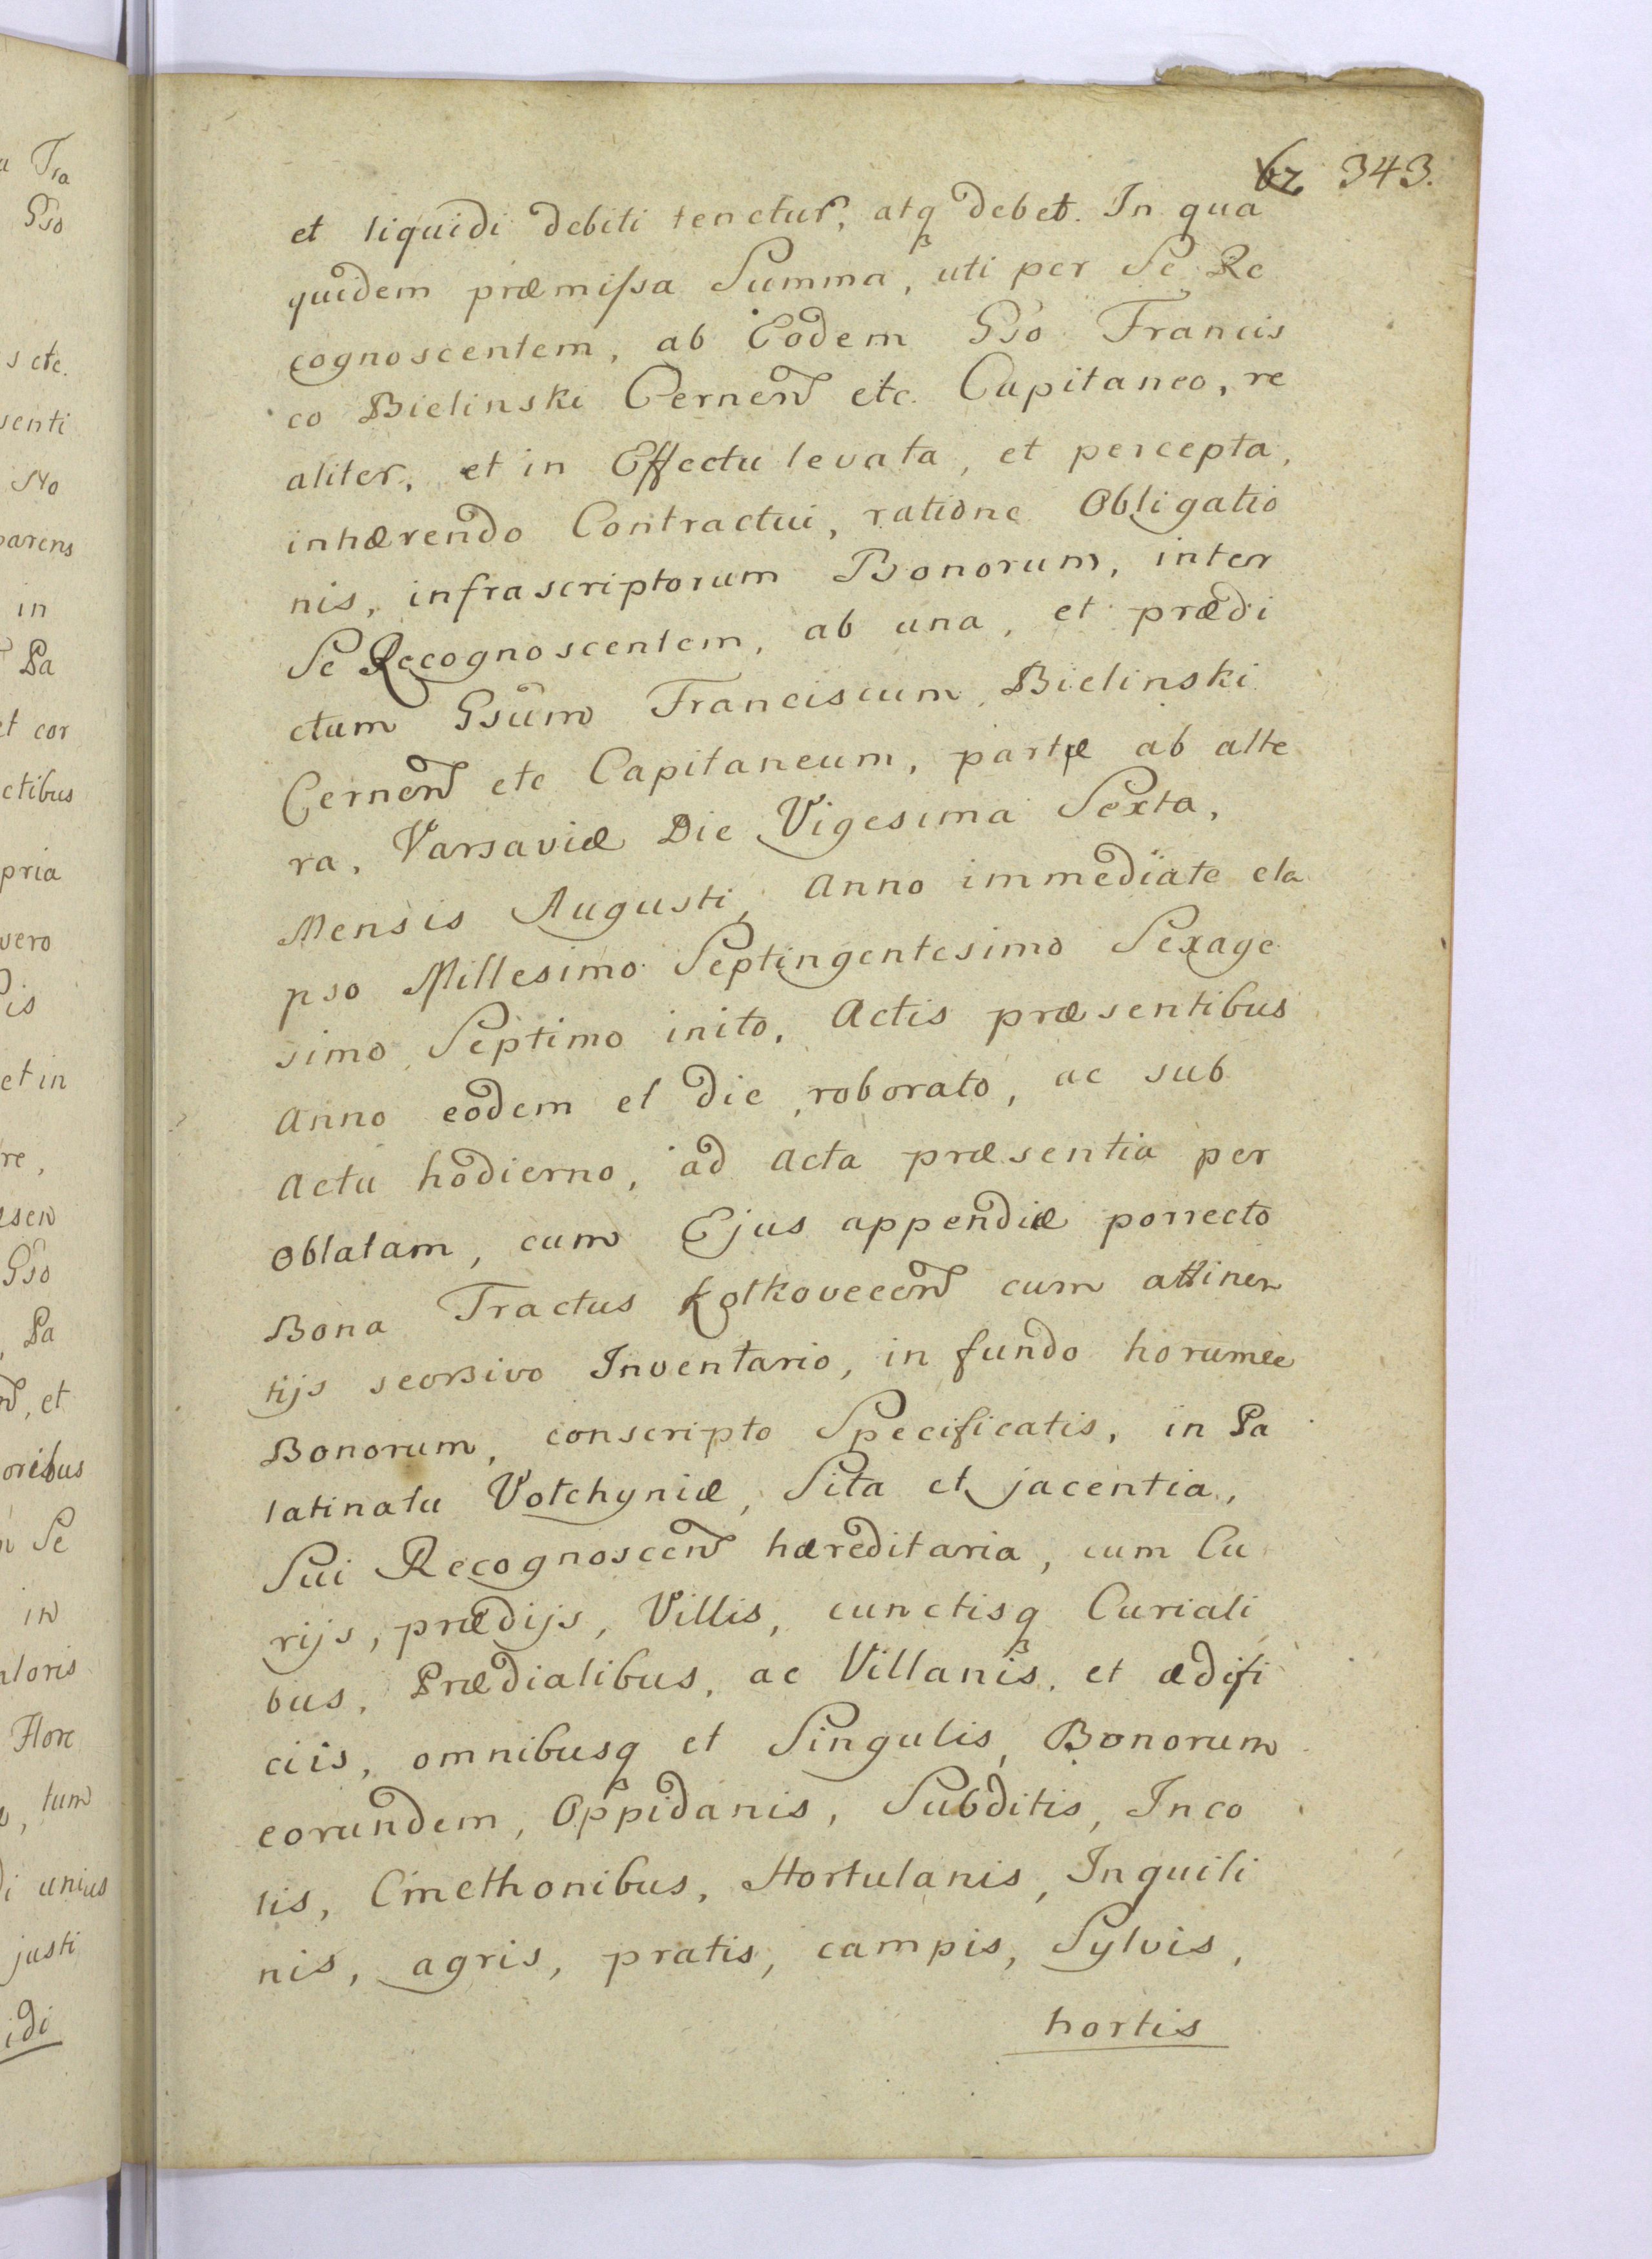 62 343.
et liquidi debiti tenetur, atq debet. In qua
quidem præmissa Summa, uti per Se Re
cognoscentem, ab Eodem Gso Francis
co Bielinski Cernen etc. Capitaneo, re
aliter, et in Effectu levata, et percepta,
inhærendo Contractui, ratione Obligatio
nis, infrascriptorum Bonorum, inter
Se Recognoscentem, ab una, et prædi
ctum Gsum Franciscum Bielinski
Cernen etc Capitaneum, partæ ab alte
ra, Varsaviæ Die Vigesima Sexta,
Mensis Augusti, Anno immediate ela
pso Millesimo Septingentesimo Sexage
simo Septimo inito, Actis præsentibus
Anno eodem et die roborato, ac sub
Actu hodierno, ad Acta præsentia per
Oblatam, cum Ejus appendiæ porrecto
Bona Tractus Kolkovecen cum attinen
tijs seorsivo Inventario, in fundo horumce
Bonorum, conscripto Specificatis, in Pa
latinatu Volchyniæ, Sita et jacentia,
Sui Recognoscen hæreditaria, cum Cu
rijs, prædijs, Villis, cunctisq Curiali
bus, Prædialibus, ac Villanis, et ædifi
ciis, omnibusq et Singulis, Bonorum
eorundem, Oppidanis, Subditis, Inco
lis, Cmethonibus, Hortulanis, Inquili
nis, agris, pratis, campis, Sylvis,
hortis